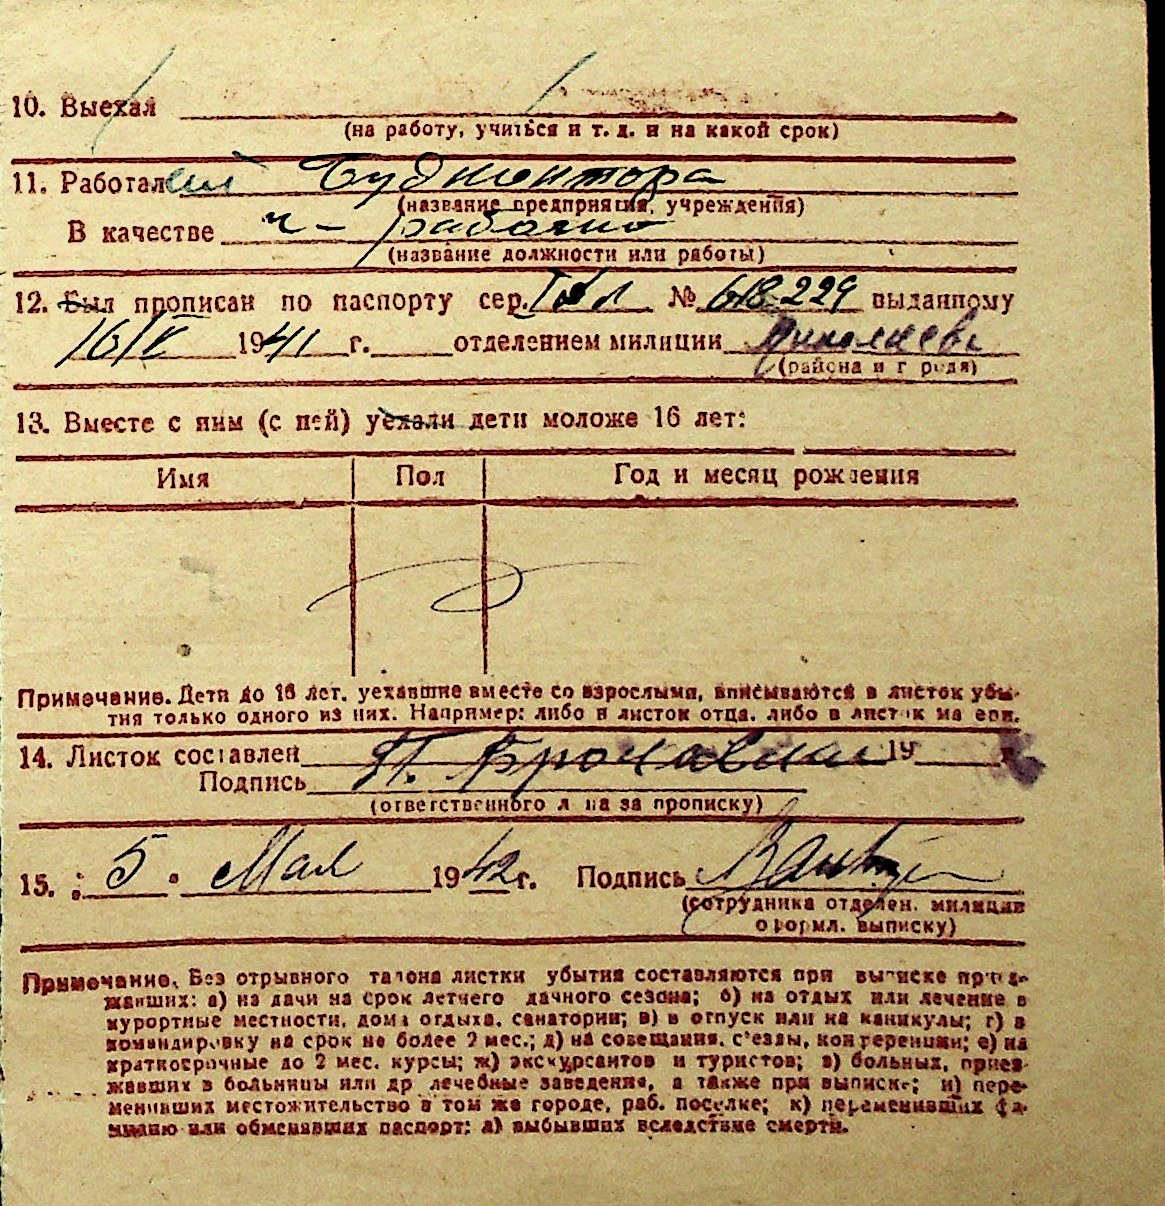 10. Выехал
(на работу, учиться и т. д. и на какой срок)
11. Работал
(название предприятия, учреждения)
В качестве ч-рабочий
(название должности или работы)
12. Был прописан по паспорту сер. № 618229 выданному
16/V 1941 г. отделением милиции Николаев
(района и города)
13. Вместе с ним (с ней) уехали дети моложе 16 лет:
Имя Пол Год и месяц рождения
Примечание. Дети до 16 лет, уехавшие вместе со взрослыми, вписываются в листок убы-
тия только одного из них. Например: либо в листок отца, либо в листок матери.
14. Листок составлен 19
Подпись
(ответственного лица за прописку)
15. 5 Мая 1942 г. Подпись
(сотрудника отделен. милиции
оформл. выписку)
Примечание. Без отрывного талона листки убытия составляются при выписке приез-
жавших: а) на дачи на срок летнего дачного сезона; б) на отдых или лечение в
курортные местности, дома отдыха, санатории; в) в отпуск или на каникулы; г) в
командировку на срок не более 2 мес.; д) на совещания, с'езды, конференции; е) на
краткосрочные до 2 мес. курсы; ж) экскурсантов и туристов; з) больных, приез-
жавших в больницы или др лечебные заведения, а также при выписке; и) пере-
менивших местожительство в том же городе, раб. поселке; к) переменивших фа-
милию или обменявших паспорт; л) выбывших вследствие смерти.